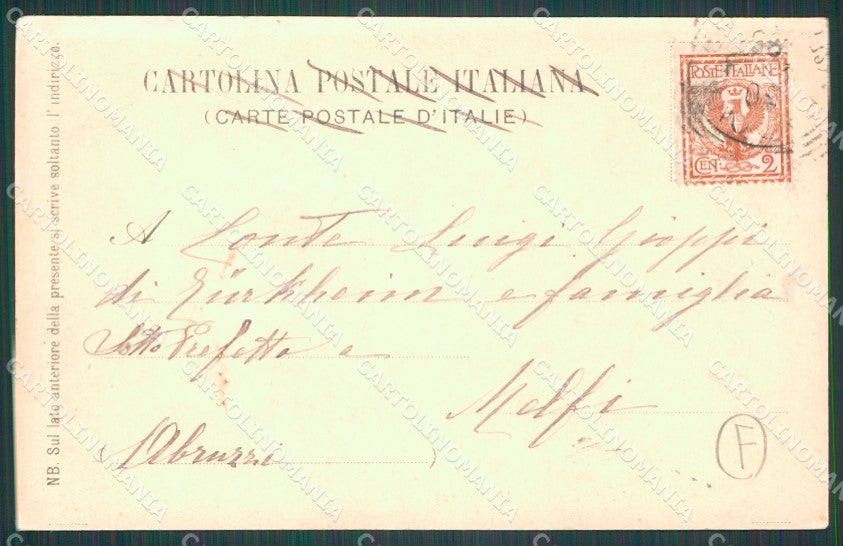 CARTOLINA POSTALE ITALIANA
(CARTE POSTALE D'ITALIE)
POSTE ITALIANE
CEN 2
NB. Sul lato anteriore della presente si scrive soltanto l'indirizzo.
A Conte Luigi Gioppi
di Türkheim e famiglia
Sotto Prefetto a
Melfi
(Abruzzi)
F
CARTOLINOMANIA